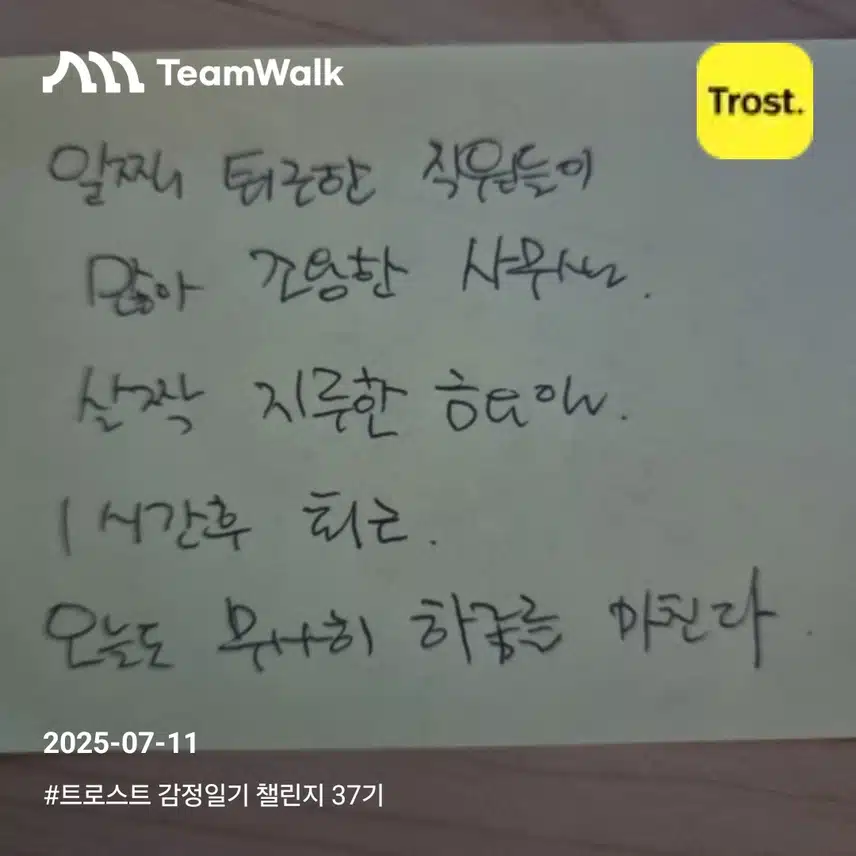 TeamWalk
Trost.
일찍 퇴근한 직원들이
많아 조용한 사무실.
살짝 지루한 금요일.
1시간후 퇴근.
오늘도 무사히 하루를 마친다.
2025-07-11
#트로스트 감정일기 챌린지 37기